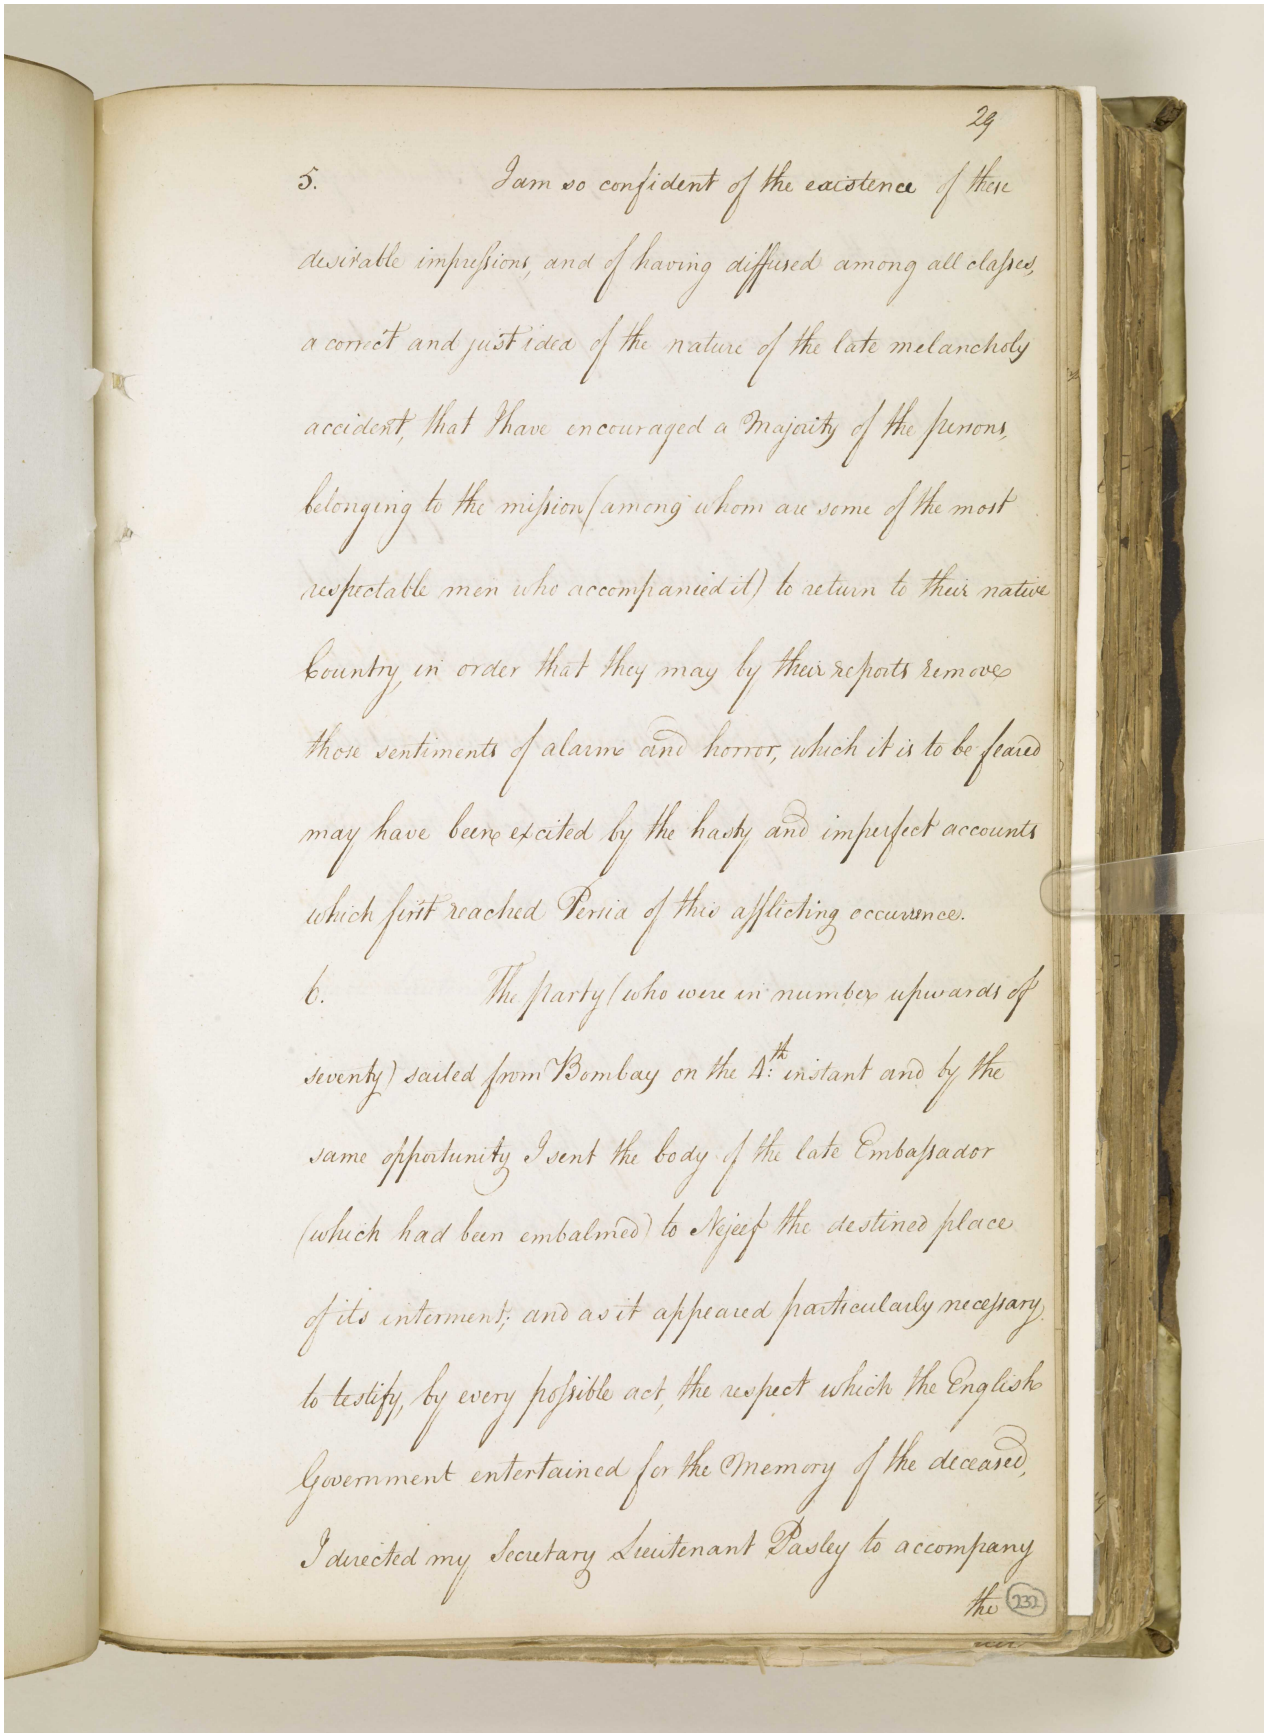 29
5. I am so confident of the existence of these
desirable impreſsions, and of having diffused among all claſses,
a correct and just idea of the nature of the late melancholy
accident, that I have encouraged a Majority of the persons,
belonging to the miſsion (among whom are some of the most
respectable men who accompanied it) to return to their native
Country, in order that they may by their reports remove
those sentiments of alarm and horror, which it is to be feared
may have been excited by the hasty and imperfect accounts
which first reached Persia of this afflicting occurrence.
6. The party (who were in number upwards of
seventy) sailed from Bombay on the 4th instant and by the
same opportunity I sent the body of the late Embaſsador
(which had been embalmed) to Nejeef the destined place
of its interment; and as it appeared particularly neceſsary
to testify, by every poſsible act, the respect which the English
Government entertained for the Memory of the deceased,
I directed my Secretary Lieutenant Pasley to accompany
the
232